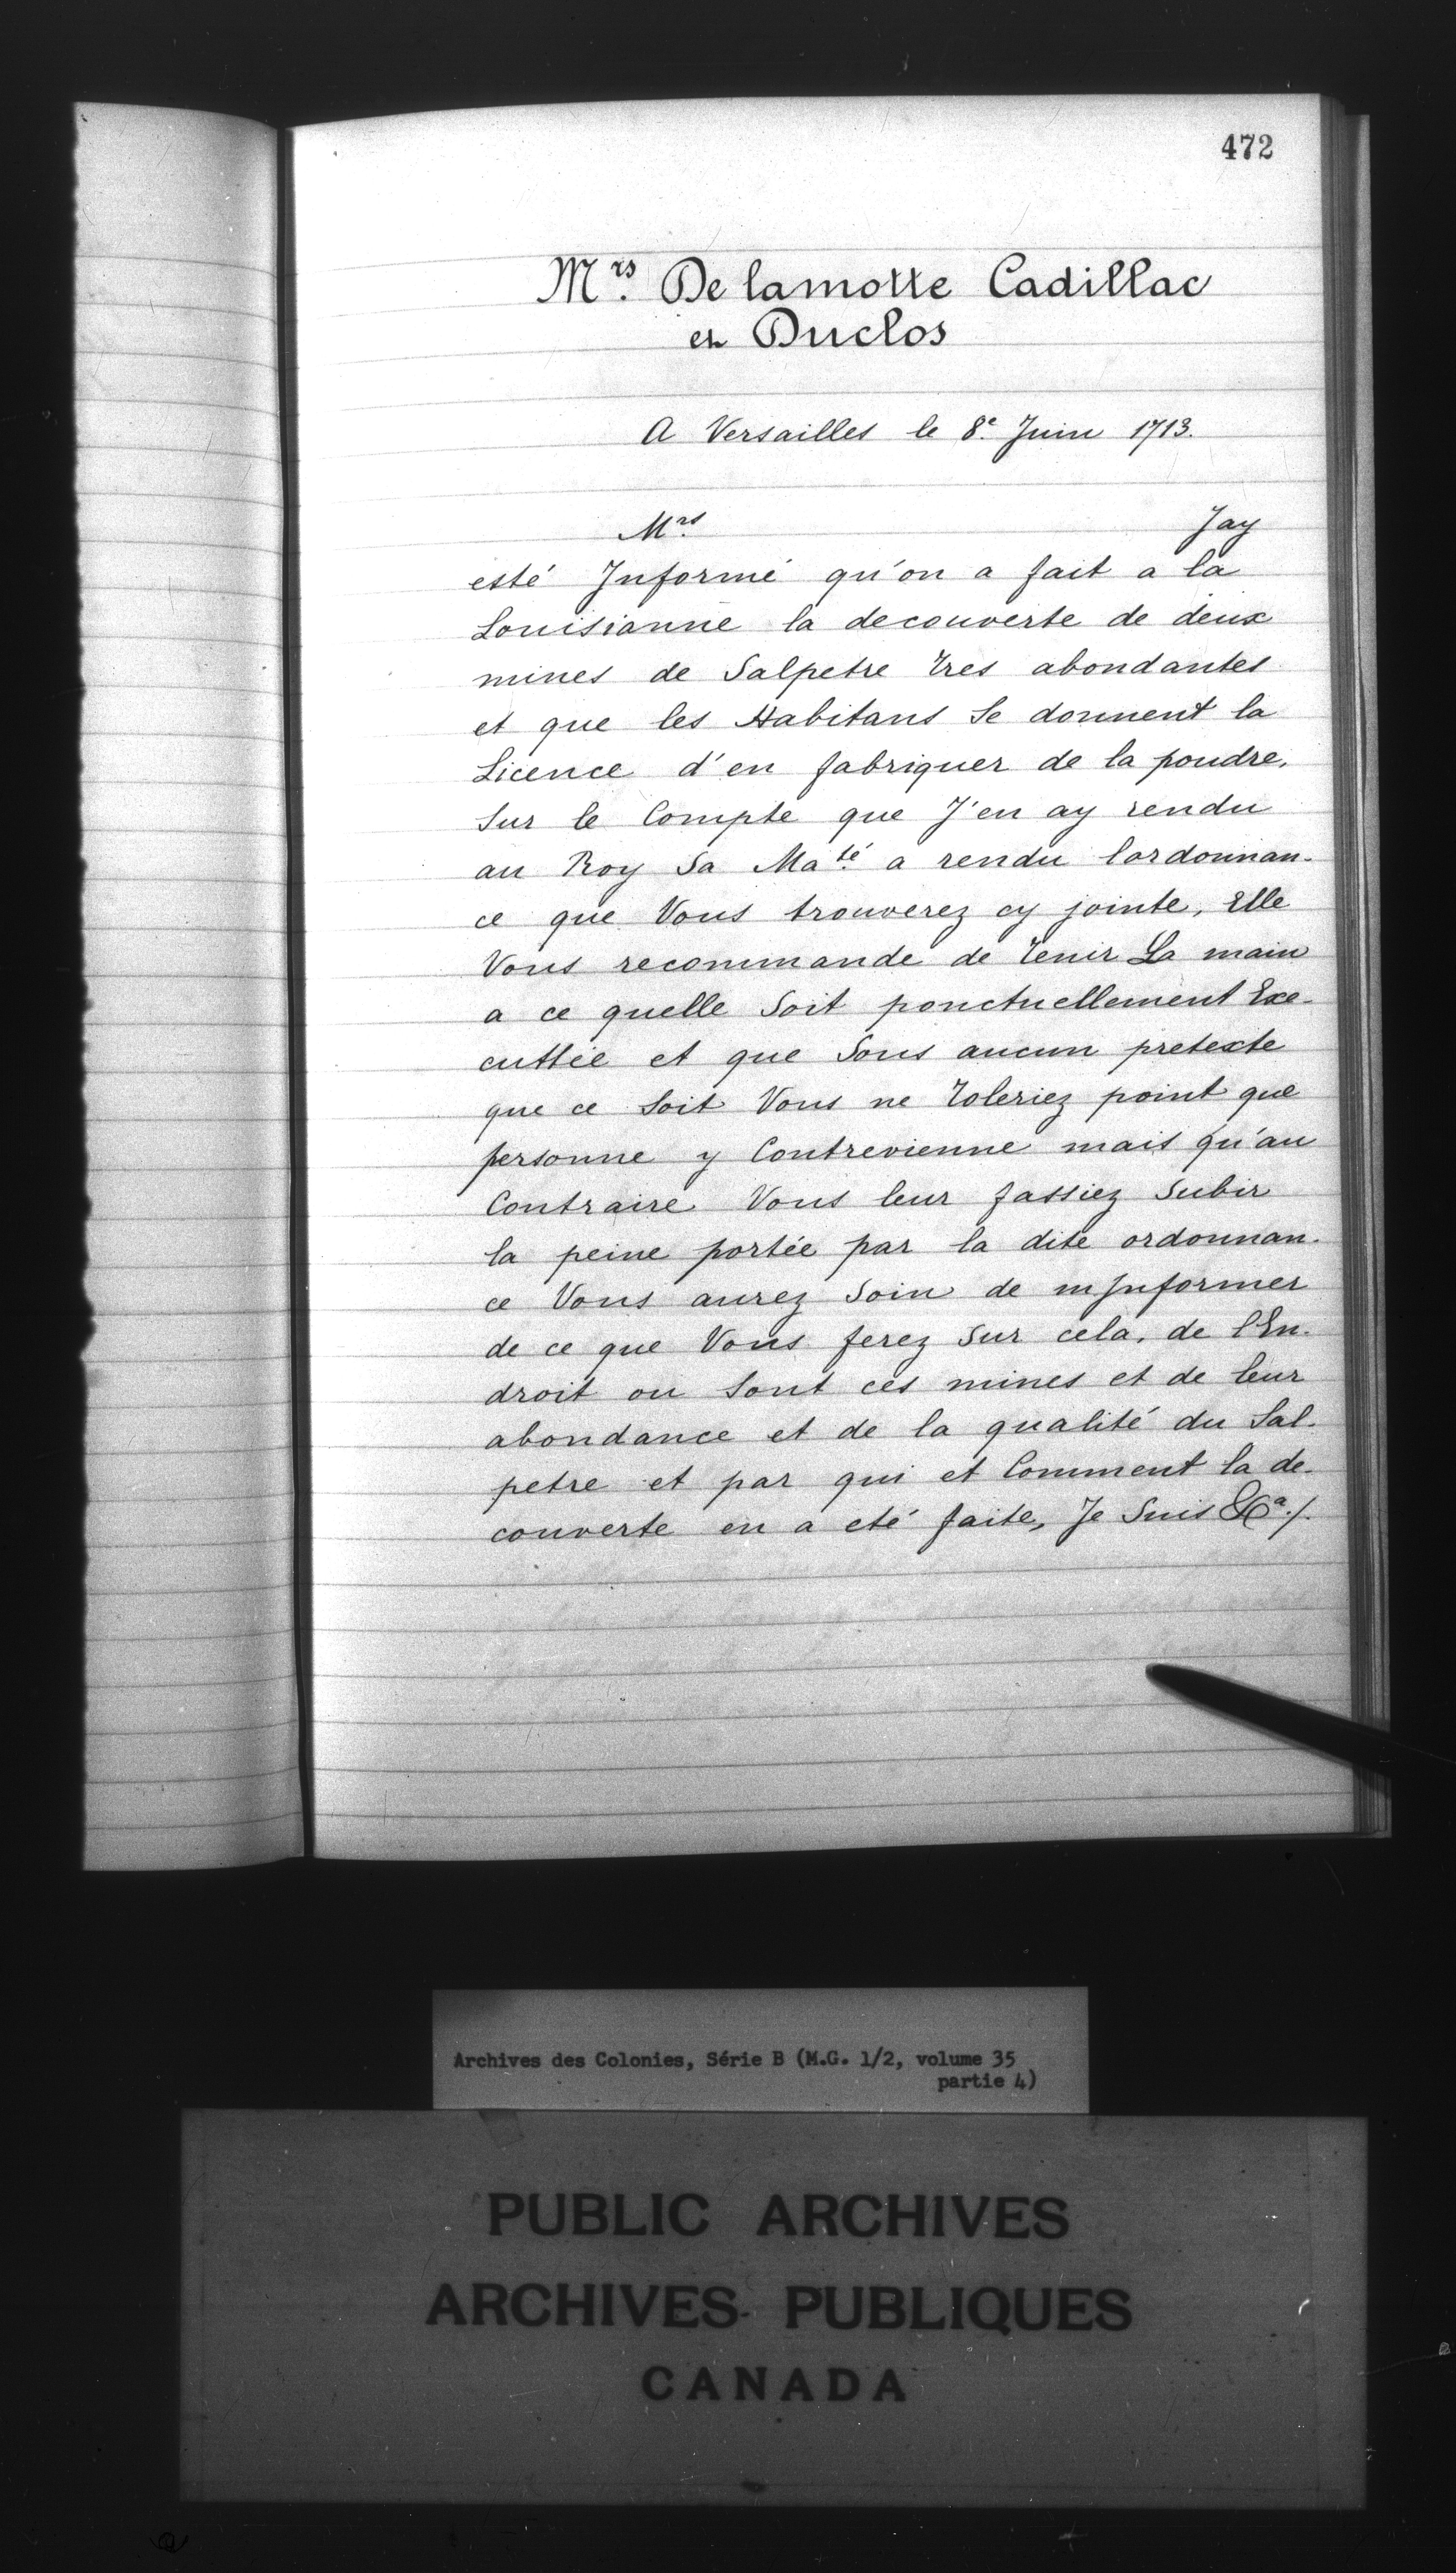 472
Mrs. De lamotte Cadillac
et Duclos
A Versailles le 8e. Juin 1713.
Mrs. Jay
esté Informé qu'on a fait a la
Louisianne la decouverte de deux
mines de Salpetre tres abondantes
et que les Habitans Se donnent la
Licence d'en fabriquer de la poudre,
Sur le Compte que J'en ay rendu
au Roy Sa Maté. a rendu lordonnan-
ce que Vous trouverez cy jointe, Elle
Vous recommande de tenir La main
a ce quelle Soit ponctuellement Exe-
cuttée et que Sous aucun pretexte
que ce Soit Vous ne toleriez point que
personne y Contrevienne mais qu'au
Contraire Vous leur fassiez Subir
la peine portée par la dite ordonnan-
ce Vous aurez Soin de mJnformer
de ce que Vous ferez Sur cela, de l'En-
droit ou Sont ces mines et de leur
abondance et de la qualité du Sal-
petre et par qui et Comment la de-
couverte en a eté faite, Je Suis &Ca./.
Archives des Colonies, Série B (M.G. 1/2, volume 35
partie 4)
PUBLIC ARCHIVES
ARCHIVES PUBLIQUES
CANADA